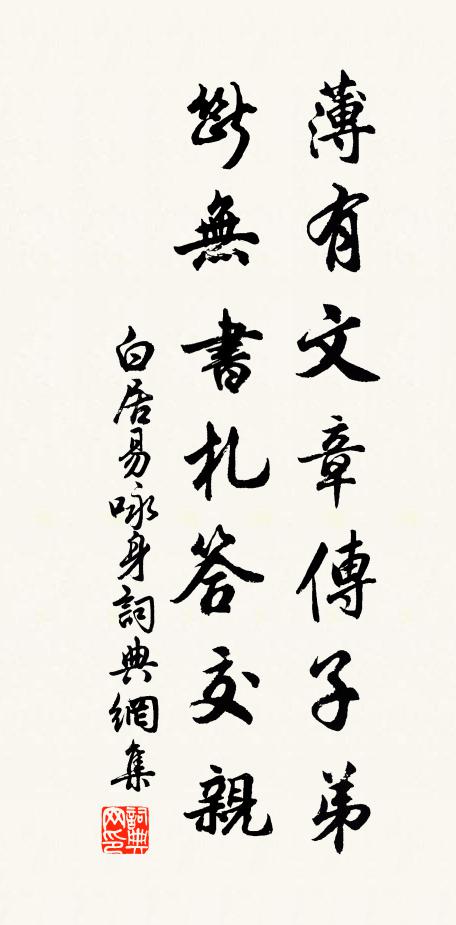 薄有文章傳子弟
斷無書札答交親
白居易咏身詞典網集
詞典网印